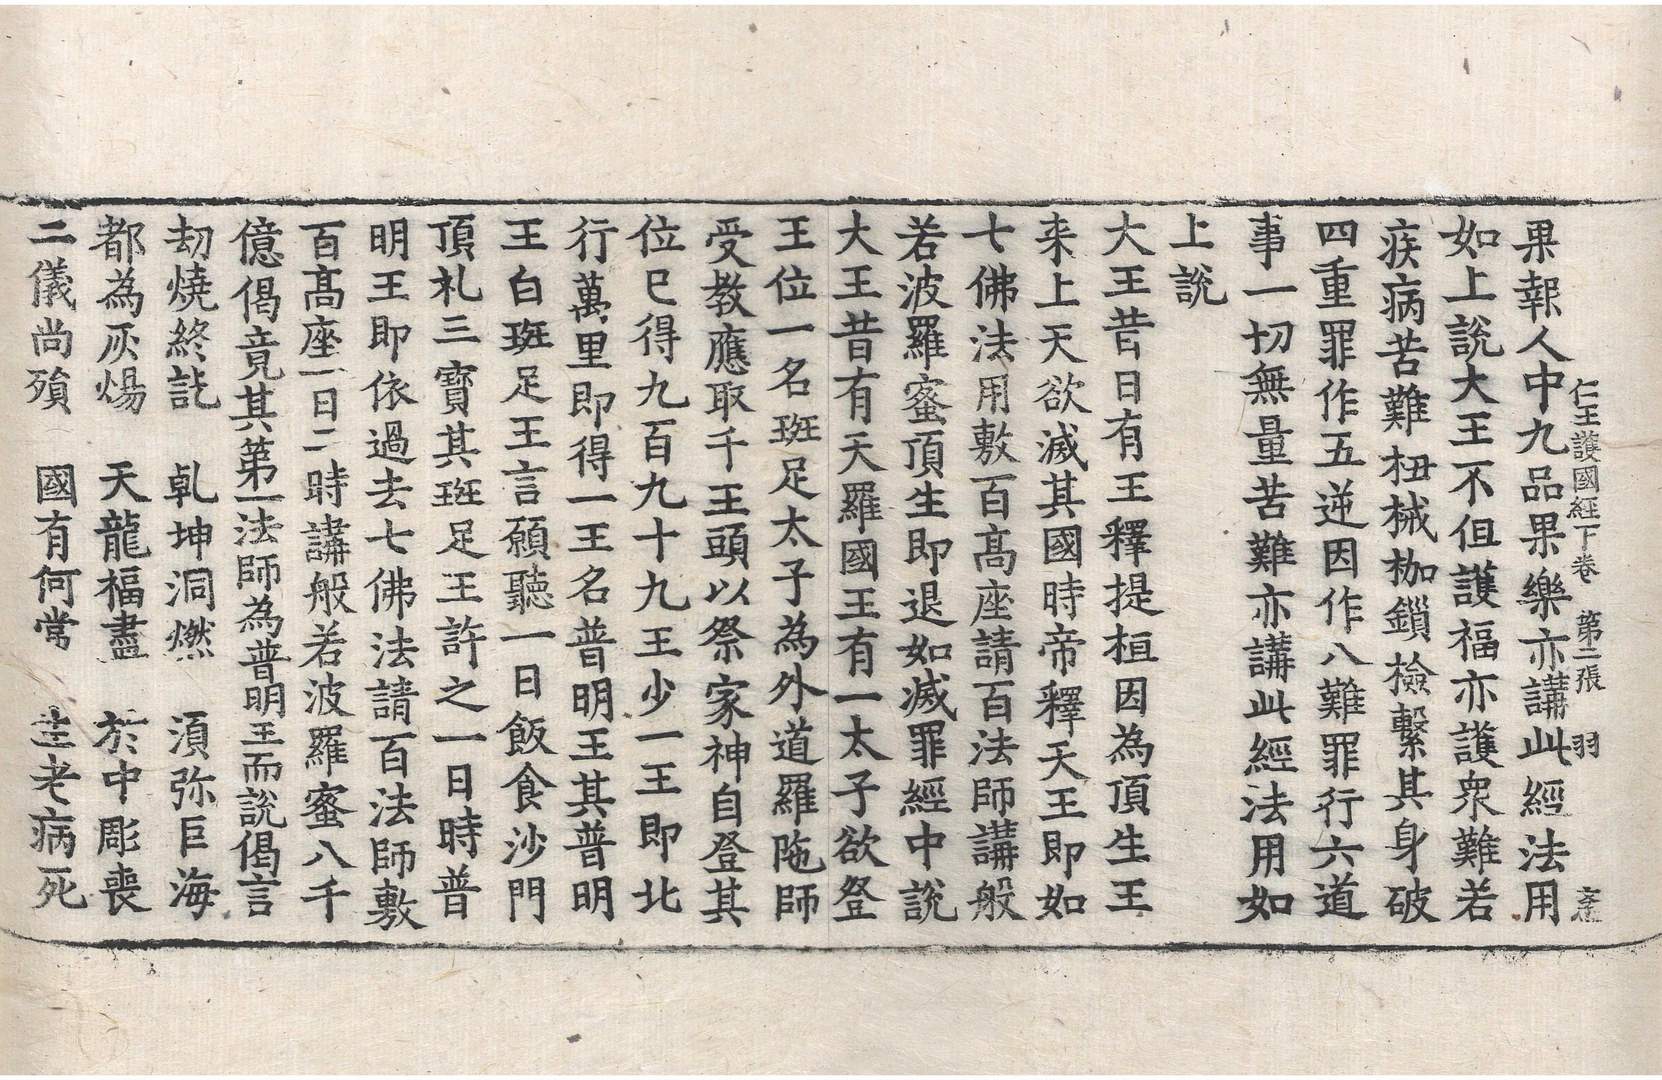 仁王護國經下卷 第二張 羽
果報人中九品果樂亦講此經法用
如上說大王不但護福亦護衆難若
疾病苦難杻械枷鎖撿繫其身破
四重罪作五逆因作八難罪行六道
事一切無量苦難亦講此經法用如
上說
大王昔日有王釋提桓因為頂生王
来上天欲滅其國時帝釋天王即如
七佛法用敷百髙座請百法師講般
若波羅蜜頂生即退如滅罪經中說
大王昔有天羅國王有一太子欲登
王位一名班足太子為外道羅陁師
受教應取千王頭以祭家神自登其
位已得九百九十九王少一王即北
行萬里即得一王名普明王其普明
王白班足王言願聽一日飯食沙門
頂礼三寶其班足王許之一日時普
明王即依過去七佛法請百法師敷
百髙座一日二時講般若波羅蜜八千
億偈竟其第一法師為普明王而說偈言
劫燒終訖 乹坤洞燃 湏弥巨海
都為灰煬 天龍福盡 於中彫喪
二儀尚殞 國有何常 生老病死